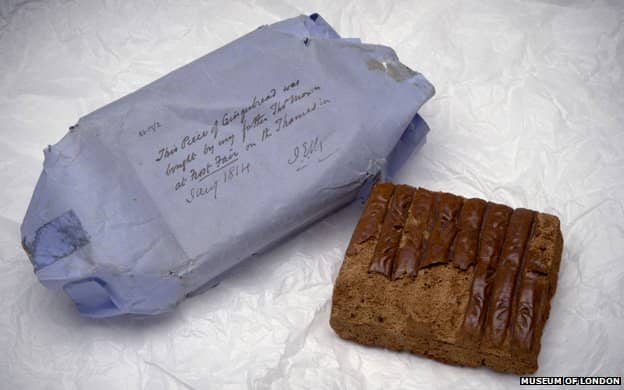 This Piece of Gingerbread was
bought by my father Tho Moxon
at Frost Fair on the Thames in
Jany 1814
MUSEUM OF LONDON